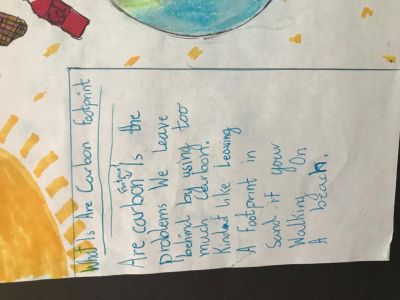 What Is Are Carbon Footprint
Are carbon footprint Is the
problems We Leave
behind by using too
much Carbon.
Kindof like Leaving
A Footprint in
Sand if your
Walking On
A beach.